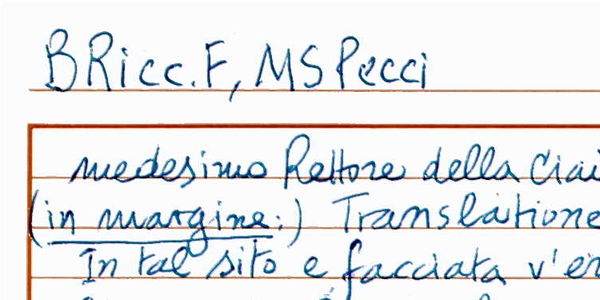 BRicc.F, MS Pecci
medesimo Rettore della
(in margine:) Translatione
In tal sito e facciata v'er